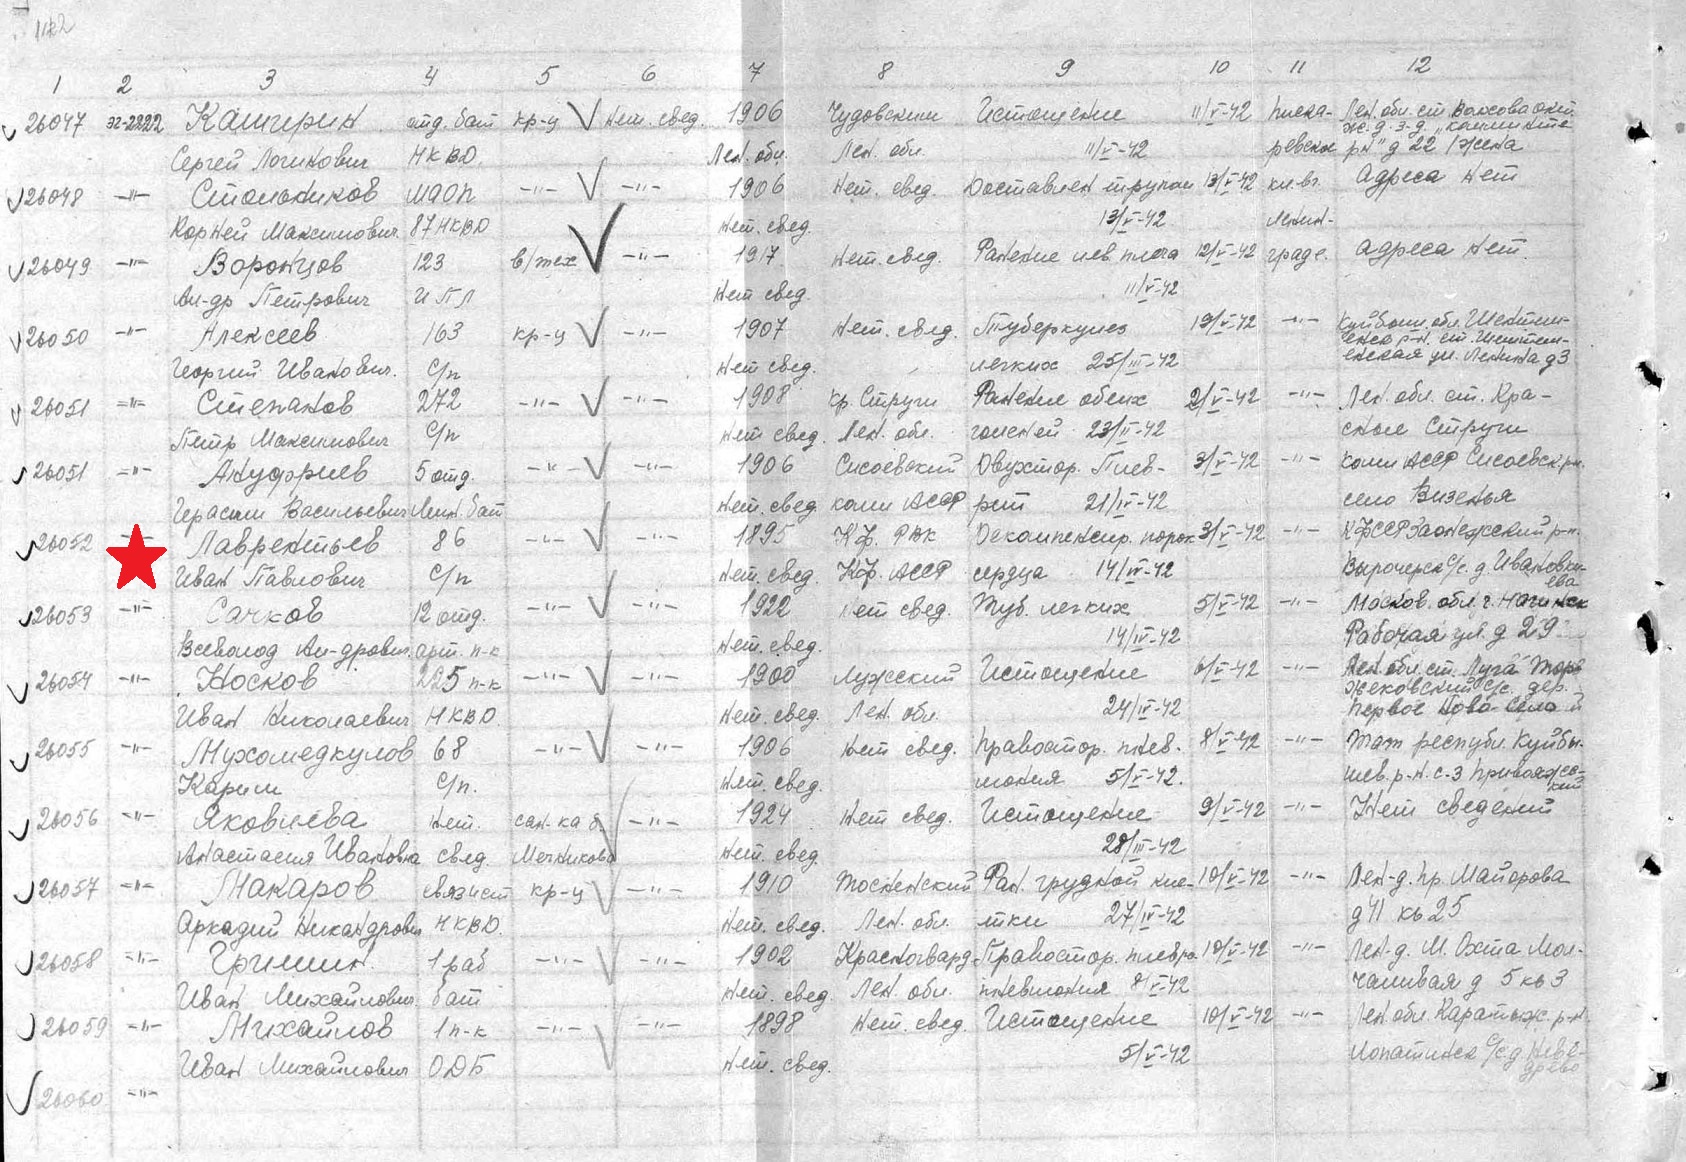 1 2 3 4 5 6 7 8 9 10 11 12
26047 эг-2222 Кашерин отд. бат кр-ц Нет. свед. 1906 Чудовским Истощение 11/V-42 Писка- Лен. обл. ст.
ж-д. д 22 жена
Сергей Логинович НКВД. Лен. обл. Лен. обл. 11/V-42 ревское
26048 -"- Стольников шаоп -"- -"- 1906 Нет. свед. Доставлен трупом 13/V-42 кл-вг. Адреса нет
Корней Максимович 87 НКВД Нет. свед. 13/V-42 Ленин-
26049 -"- Воронцов 123 в/тех -"- 1917 Нет. свед. Ранение лев плеча 12/V-42 граде. Адреса нет.
Ал-др Петрович ИПЛ Нет свед. 11/V-42
26050 -"- Алексеев 163 кр-ц -"- 1907 Нет. свед. Туберкулез 19/V-42 -"- Куйбыш. обл. Шентал-
р-н. ст. Шентал-
Георгий Иванович. С/п Нет свед. легких 25/III-42 инская ул. Ленина д 3
26051 -"- Степанов 272 -"- -"- 1908 кр. Струги Ранение обеих 2/V-42 -"- Лен. обл. ст. Кра-
Петр Максимович С/п Нет свед. Лен. обл. голеней 23/IV-42 сные Струги
26051 -"- Ануфриев 5 отд. -"- -"- 1906 Сисоевский Двухстор. Плев- 3/V-42 -"- Коми АССР Сисоевск. рн.
Герасим Васильевич Лыж. бат Нет. свед. коми АССР рит 21/IV-42 село Визенья
26052 -"- Лаврентьев 86 -"- -"- 1895 К.Ф. РВК Декомпенсир. порок 3/V-42 -"- КФССР Заонежский р-н.
Иван Павлович С/п Нет. свед. К.Ф. АССР сердца 14/IV-42 Вырочерск с/с. д. Ивановки-
ева
26053 -"- Сачков 12 отд. -"- -"- 1922 Нет свед. Туб. легких 5/V-42 -"- Москов. обл. г. Ногинск
Всеволод Ал-дрович. арт. п-к Нет. свед. 14/IV-42 Рабочая ул. д 29
26054 -"- Носков 225 п-к -"- -"- 1900 Лужский Истощение 6/V-42 -"- Лен. обл. ст. Луга Торо-
жковский с/с. дер.
Иван Николаевич НКВД Нет. свед. Лен. обл. 24/IV-42 Первое
26055 -"- Мухомедкулов 68 -"- -"- 1906 Нет свед. Правостор. пнев- 8/V-42 -"- Тат республ. Куйбы-
Карим С/п. Нет. свед. мония 5/V-42. шев. р-н. с-з
26056 -"- Яковлева Нет. сан. ка б. -"- 1924 Нет свед. Истощение 9/V-42 -"- Нет сведений
Анастасия Ивановна свед. Мечникова Нет. свед. 28/III-42
26057 -"- Макаров связист кр-ц -"- 1910 Тосненский Ран. грудной кле- 10/V-42 -"- Лен-д. пр. Майорова
Аркадий Никандрович НКВД. Нет. свед. Лен. обл. тки 27/IV-42 д 41 кв 25
26058 -"- Гришин. 1 раб -"- -"- 1902 Красногвард. Правостор. плевро 10/V-42 -"- Лен-д. М. Охта Мол-
Иван Михайлович бат Нет. свед. Лен. обл. пневмония 8/V-42 чаливая д 5 кв 3
26059 -"- Михайлов 1 п-к -"- -"- 1898 Нет. свед. Истощение 10/V-42 -"- Лен обл. р-н.
Иван Михайлович ОДБ Нет. свед. 5/V-42 с/с д
26060 -"-